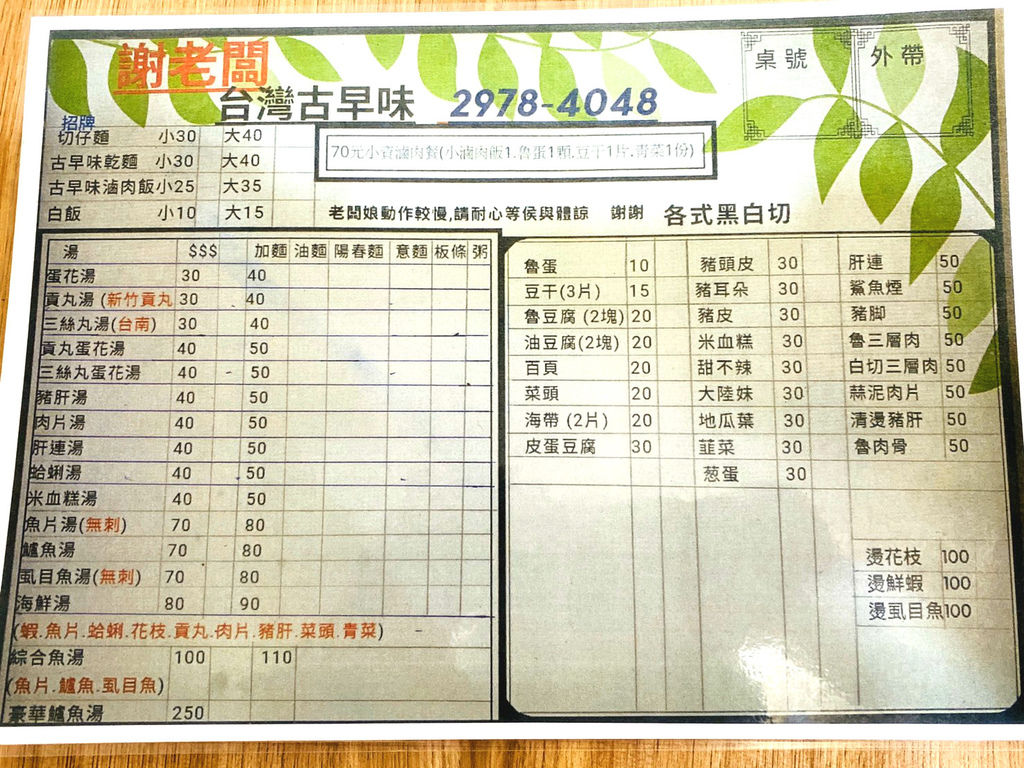 謝老闆
台灣古早味 2978-4048
桌號 外帶
招牌
切仔麵 小30 大40
古早味乾麵 小30 大40
古早味滷肉飯 小25 大35
白飯 小10 大15
70元小資滷肉餐(小滷肉飯1.魯蛋1顆.豆干1片.青菜1份)
老闆娘動作較慢,請耐心等侯與體諒 謝謝
各式黑白切
湯 $$$ 加麵 油麵 陽春麵 意麵 板條 粥
蛋花湯 30 40
貢丸湯 (新竹貢丸 30 40
三絲丸湯(台南) 30 40
貢丸蛋花湯 40 50
三絲丸蛋花湯 40 50
豬肝湯 40 50
肉片湯 40 50
肝連湯 40 50
蛤蜊湯 40 50
米血糕湯 40 50
魚片湯(無刺) 70 80
鱸魚湯 70 80
虱目魚湯(無刺) 70 80
海鮮湯 80 90
(蝦.魚片.蛤蜊.花枝.貢丸.肉片.豬肝.菜頭.青菜)
綜合魚湯 100 110
(魚片.鱸魚.虱目魚)
豪華鱸魚湯 250
魯蛋 10 豬頭皮 30 肝連 50
豆干(3片) 15 豬耳朵 30 鯊魚煙 50
魯豆腐 (2塊) 20 豬皮 30 豬脚 50
油豆腐(2塊) 20 米血糕 30 魯三層肉 50
百頁 20 甜不辣 30 白切三層肉 50
菜頭 20 大陸妹 30 蒜泥肉片 50
海帶 (2片) 20 地瓜葉 30 清燙豬肝 50
皮蛋豆腐 30 韮菜 30 魯肉骨 50
葱蛋 30
燙花枝 100
燙鮮蝦 100
燙虱目魚 100